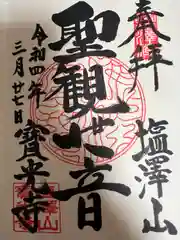 奉拝
塩澤山
聖観世音
令和四年
三月廿七日
寶光寺